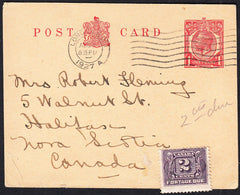 POST CARD
1927
Mrs Robert Fleming
5 Walnut St.
Halifax
Nova Scotia
Canada
2 cts due
CANADA
2
POSTAGE DUE